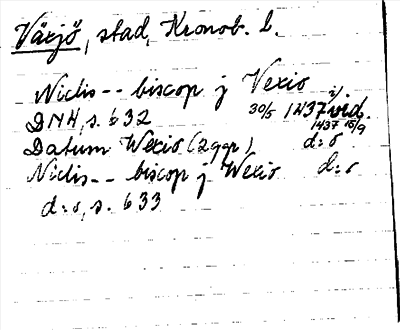 Växjö, stad, Kronob. l.
Niclis -- biscop j Vexio
DN4, s. 632 30/5 1437 vid.
1437 15/9
Datum Wexio (2 ggr) d:o
Niclis -- biscop j Wexio d:o
d:o, s. 633